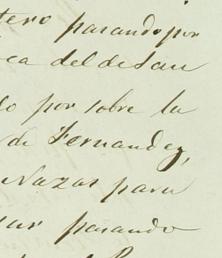 tero pasando por
ca del de San
do por sobre la
de Fernandez,
Nazas para
sar pasando